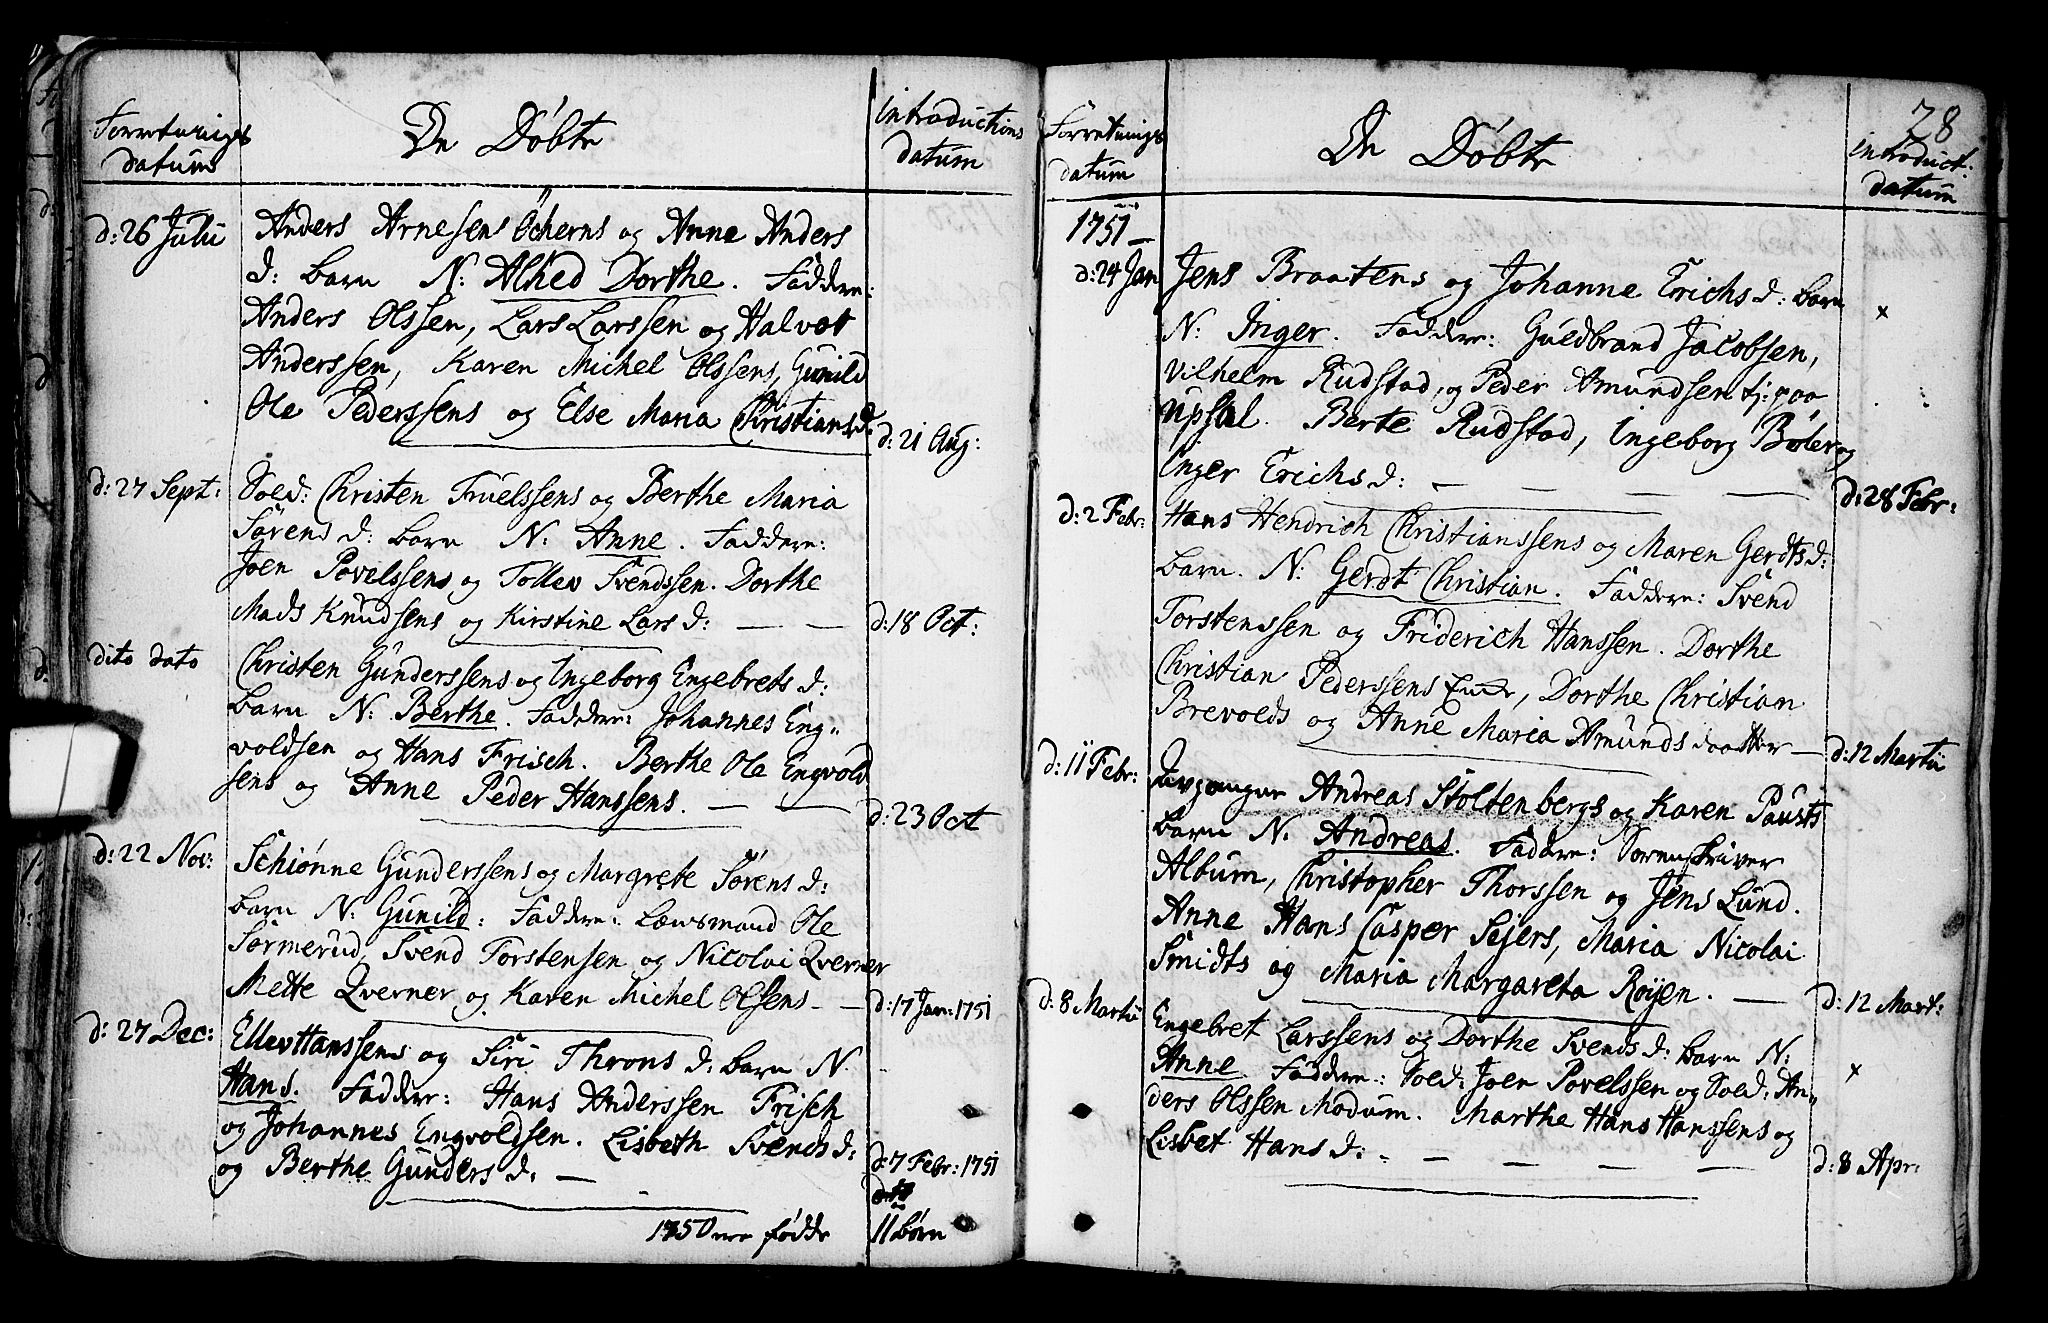 Forretnings
datum
De Døbte
introductions
datum
d: 26 Julii
Anders Arnesens Öcherns og Anne Anders
d: barn N: Alhed Dorthe. Faddere:
Anders Olssen, Lars Larssen og Halvor
Anderssen, Karen Michel Olssens, Gunild
Ole Pederssens og Else Maria Christiansd.
d: 21 Aug:
d: 27 Sept:
Sold: Christen Truelssens og Berthe Maria
Sørens d: barn N: Anne. Faddere:
Joen Povelssens og Tollev Svendssen. Dorthe
Mads Knudsens og Kirstine Lars d: — —
d: 18 Oct:
dito dato
Christen Gunderssens og Ingeborg Engebrets d:
barn N: Berthe. Faddere: Johannes Eng„
voldsen og Hans Frisch. Berthe Ole Engvold
sens og Anne Peder Hanssens. — —
d: 23 Oct
d: 22 Nov:
Schiønne Gunderssens og Margrete Sørens d:
barn N: Gunild: Faddere: Lænsmand Ole
Sørmerud, Svend Torstensen og Nicolai Qverner
Mette Qverner og Karen Michel Olsens — —
d: 17 Jan: 1751
d: 27 Dec:
Ellev Hanssens og Siri Throns d: barn N.
Hans. Faddere: Hans Anderssen Frisch
og Johannes Engvoldsen. Lisbeth Svends d:
og Berthe Gunders d: —
d: 7 Febr: 1751
1750 ere fødde
11 børn
28
Forretnings
datum
De Døbte
introduct:
datum
1751 —
d: 24 Jan
Jens Braatens og Johanne Erichs d: barn
x
N: Inger. Faddere: Guldbrand Jacobsen,
Vilhelm Rudstad, og Peder Amundsen tj: paa
Upsal. Berte Rudstad, Ingeborg Bøler og
Inger Erichs d: — — — —
d: 28 Febr:
d: 2 Febr:
Hans Hendrich Christianssens og Maren Gerdts d:
barn. N: Gerdt Christian. Faddere: Svend
Torstenssen og Friderich Hanssen. Dorthe
Christian Pederssens Enke, Dorthe Christian
Brevolds og Anne Maria Amunds daatter —
d: 12 Martii
d: 11 Febr:
Andreas Stoltenbergs og Karen Pausts
barn N: Andreas. Faddere: Sorenskriver
Album, Christopher Thorssen og Jens Lund.
Anne Hans Casper Sejers, Maria Nicolai
Smidts og Maria Margareta Røyen. —
d: 12 Mart:
d: 8 Martii
Engebret Larssens og Dorthe Svends d: barn N:
x
Anne. Faddere: Sold: Joen Povelssen og Sold: An„
ders Olssen Modum. Marthe Hans Hanssens og
Lisbet Hans d: — — — — —
d: 8 Apr: